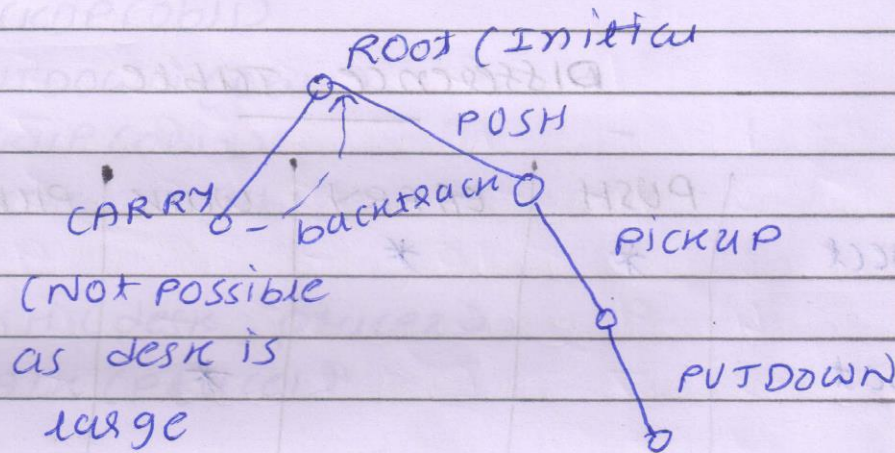 ROOT (Initial
PUSH
CARRY
backtrack
PICKUP
(Not possible
as desk is
large
PUTDOWN